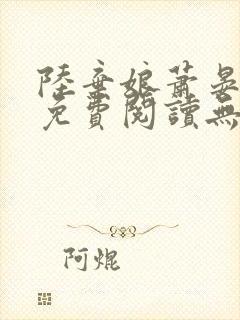 陸棄娘蕭晏
免費閱讀無
阿焜